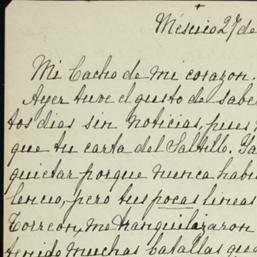 Mexico 27 de
Mi Cacho de mi corazon.
Ayer tuve el gusto de sabe
tos dias sin noticias, pues n
que tu carta del Saltillo. Ya
quietar porque nunca habi
lencio, pero tus pocas lineas
Torreon, me tranquilizaron
tenido muchas batallas que